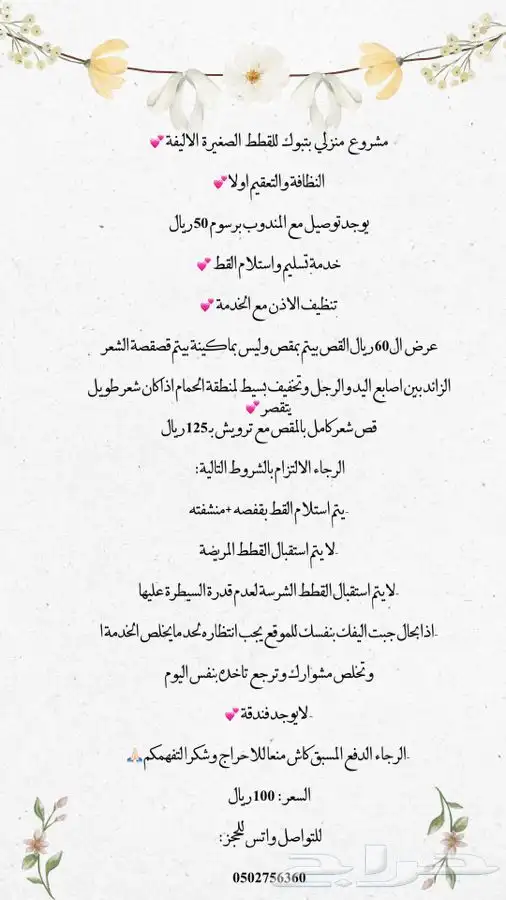 مشروع منزلي بتبوك للقطط الصغيرة الاليفة💕
النظافة والتعقيم اولا💕
يوجد توصيل مع المندوب برسوم 50 ريال
خدمة تسليم واستلام القط 💕
تنظيف الاذن مع الخدمة 💕
عرض ال60 ريال القص بيتم بمقص وليس بماكينة بيتم قصقصة الشعر
الزائد بين اصابع اليد والرجل وتخفيف بسيط لمنطقة الحمام اذا كان شعر طويل
يتقصر💕
قص شعر كامل بالمقص مع ترويش بـ125 ريال
الرجاء الالتزام بالشروط التالية:
-يتم استلام القط بقفصه +منشفته
-لا يتم استقبال القطط المريضة
-لا يتم استقبال القطط الشرسة لعدم قدرة السيطرة عليها
-اذا بحال جبت اليفك بنفسك للموقع يجب انتظاره لحد ما يخلص الخدمة ا
وتخلص مشوارك وترجع تاخذه بنفس اليوم
-لا يوجد فندقة 💕
-الرجاء الدفع المسبق كاش منعا للاحراج وشكرا لتفهمكم🙏🏻
السعر: 100 ريال
للتواصل واتس للحجز:
0502756360
حراج